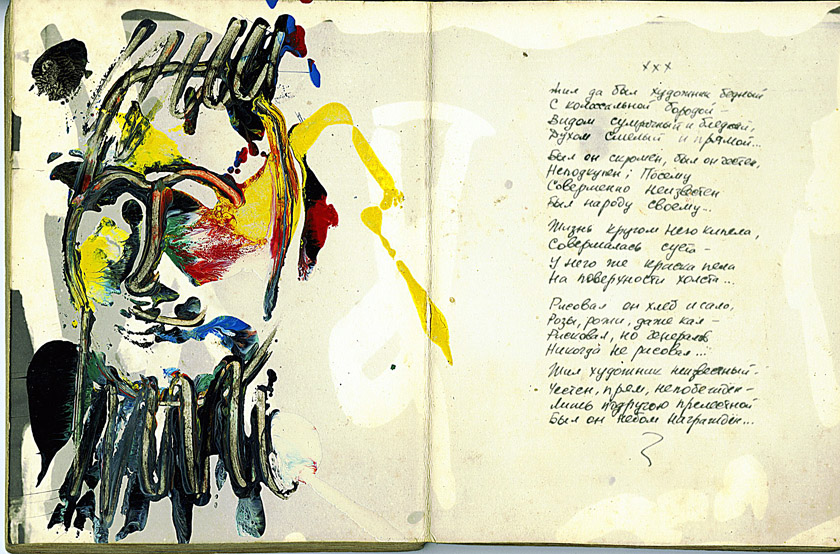 ххх
Жил да был художник бедный
С колоссальной бородой –
Видом сумрачный и бледный,
Духом смелый и прямой...
Был он скромен, был он честен,
Неподкупен; Посему
Совершенно неизвестен
Был народу своему...
Жизнь кругом него кипела,
Совершалась суета –
У него же краска пела
На поверхности холста...
Рисовал он хлеб и сало,
Розы, рожи, даже кал –
Рисковал, но генералов
Никогда не рисовал...
Жил художник неизвестный –
Честен, прям, непобежден –
Лишь подругою прелестной
Был он Небом награжден...